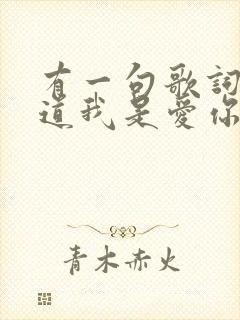 有一句歌詞
道我是愛你
青木赤火